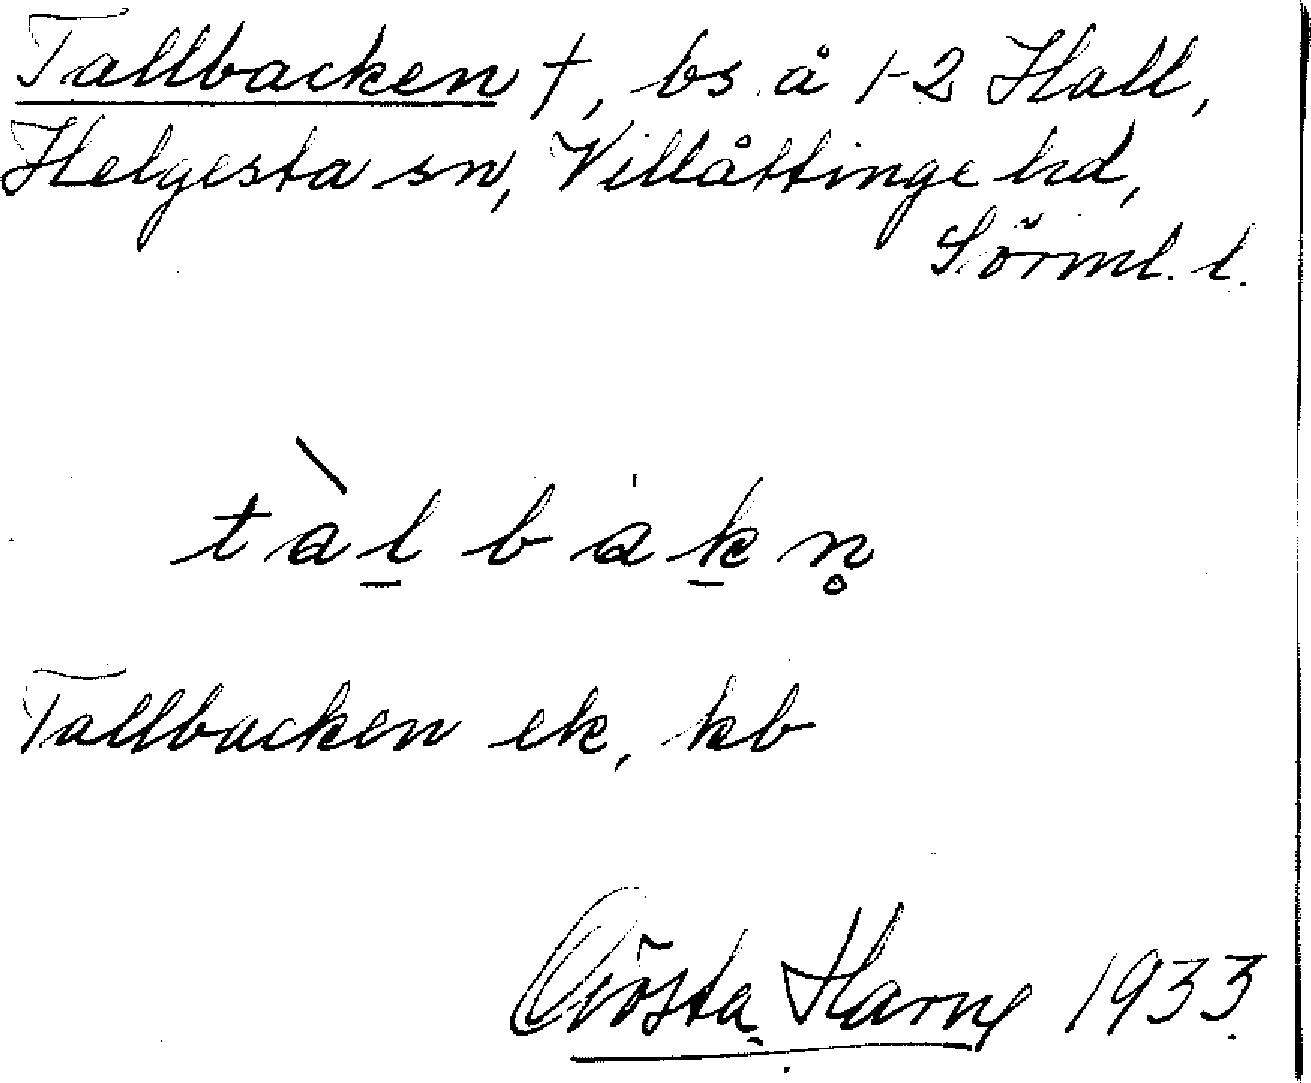 Tallbacken †, bs å 1-2 Hall,
Helgesta sn, Villåttinge hd,
Sörml. l.
tàl̠bàk̠n̥
Tallbacken ek, kb
Gösta Harne 1933